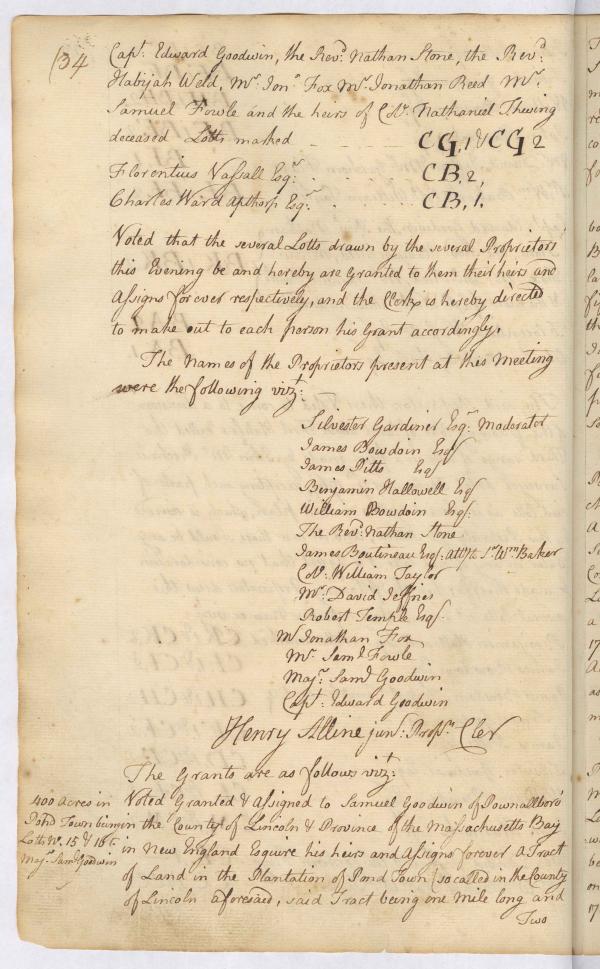 (34
Capt. Edward Goodwin, the Revd. Nathan Stone, the Revd.
Habijah Weld, Mr. Jono. Fox Mr. Jonathan Reed Mr.
Samuel Fowle and the heirs of Colo. Nathaniel Thwing
deceased Lotts marked - - - CG,1 & CG 2
Florentius Vassall Esqr. - - - CB,2,
Charles Ward Apthorp Esqr. - - CB,1.
Voted that the several Lotts drawn by the several Proprietors
this Evening be and hereby are Granted to them their heirs and
Assigns forever respectively, and the Clerk is hereby directed
to make out to each person his Grant accordingly.
The names of the Proprietors present at this Meeting
were the following vizt: —
Silvester Gardiner Esqr. Moderator
James Bowdoin Esq
James Pitts Esq
Benjamin Hallowell Esq
William Bowdoin Esq:
The Revd: Nathan Stone
James Boutineau Esq: atty to Sr. Wm Baker
Colo: William Taylor
Mr. David Jeffries
Robert Temple Esq.
Mr Jonathan Fox
Mr. Saml Fowle
Majr. Saml Goodwin
Capt: Edward Goodwin
Henry Alline junr: Proprs. Cler
The Grants are as follows vizt:
400 Acres in
Pond Town being
Lotts No. 15 & 16
Maj. Saml Goodwin
Voted Granted & Assigned to Samuel Goodwin of Pownallboro'
in the County of Lincoln & Province of the Massachusetts Bay
in New England Esquire his heirs and Assigns forever A Tract
of Land in the Plantation of Pond Town (so called in the County
of Lincoln aforesaid, said Tract being one Mile long and
Two